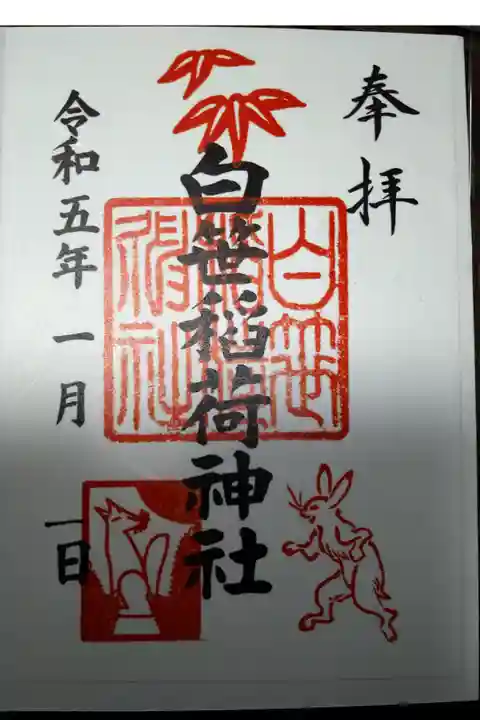 奉拝
白笹稲荷神社
白笹稲荷神社
令和五年 一月 一日